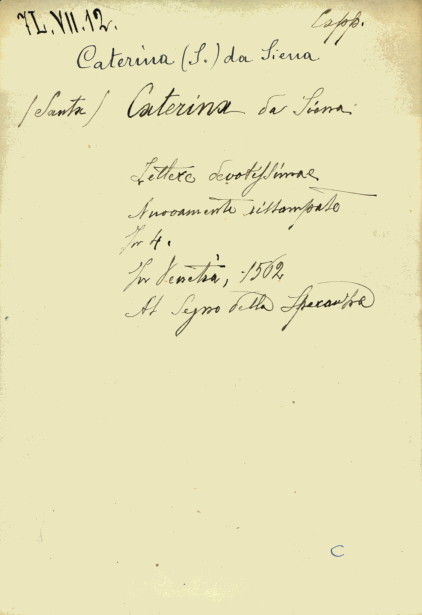 7L.VII.12.
Capp.
Caterina (S.) da Siena
(Santa) Caterina da Siena.
Lettere devotissimae
Nuovamente ristampate
In 4.
In Venetia, 1562
Al Segno della Speranza
C